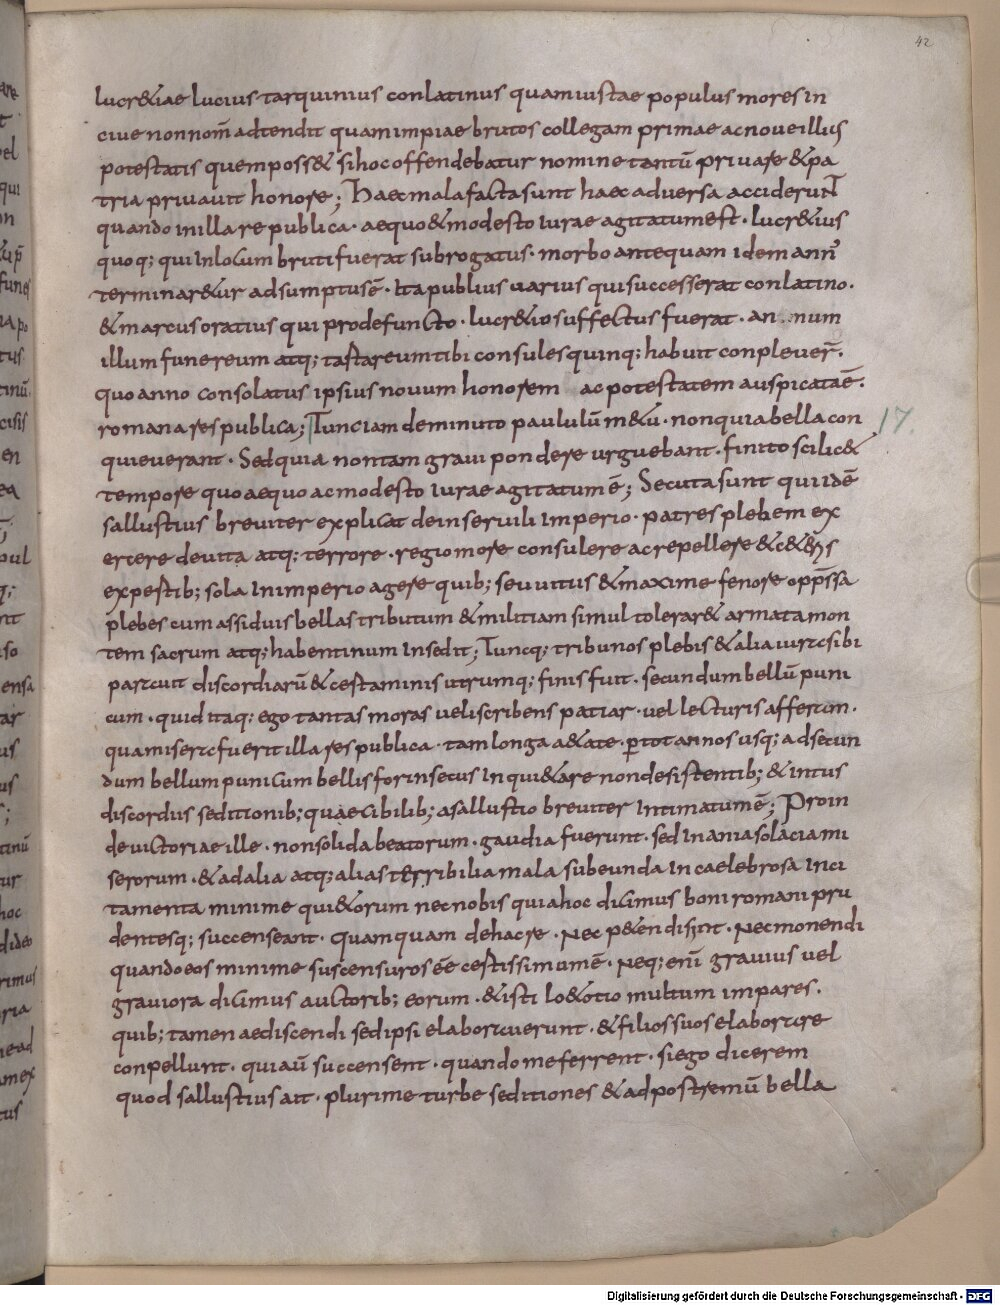 42
lucr&iae lucius tarquinius conlatinus quam iustae populus mores in
ciue non nom̄ adtendit quam impiae brutos collegam primae ac noue illius
potestatis quem poss& si hoc offendebatur nomine tantū priuare & pa
tria priuauit honore; Haec mala facta sunt haec aduersa acciderunt
quando in illa re publica· aequo & modesto iurae agitatum est· lucr&ius
quoq; qui in locum bruti fuerat subrogatus· morbo antequam idem ann̄
terminar&ur adsumptus ē· Ita publius uarius qui successerat conlatino·
& marcus oratius qui pro defuncto· lucr&io suffectus fuerat· an num
illum funereum atq; tastareum tibi consules quinq; habuit conpleuer̄·
quo anno consolatus ipsius nouum honorem ac potestatem auspicata ē·
romana res publica; Tunc iam deminuto paululū m&u· non quia bella con 17.
quieuerant· Sed quia non tam graui pondere urguebant· finito scilic&
tempore quo aequo ac modesto iurae agitatum ē; Secuta sunt qui idē
sallustius breuiter explicat dein seruili imperio· patres plebem ex
ercere de uita atq; terrore· regio more consulere ac repellere & c&eris
expestib; sola in imperio agere quib; seuitus & maxime fenore opp̄ssa
plebes cum assiduis bellas tributum & militiam simul tolerar& armata mon
tem sacrum atq; habentinum insedit; Tuncq; tribunos plebis & alia iura sibi
parauit discordiarū & certaminis utrumq; finis fuit· secundum bellū puni
cum· quid itaq; ego tantas moras uel iscribens patiar· uel lecturis afferam·
quam isera fuerit illa res publica· tam longa a&ate· p̄ tot annos usq; ad secun
dum bellum punicum bellis forinsecus inqui&are non desistentib; & intus
discordiis seditionib; quae cibilib; a sallustio breuiter intimatum ē; Proin
de uictoriae ille· non solida beatorum· gaudia fuerunt· sed inania solacia mi
serorum· & ad alia atq; alias terribilia mala subeunda in caelebrosa inci
tamenta minime qui&orum nec nobis quia hoc dicimus boni romani pru
dentesq; succenseant· quamquam de hac re· nec p&endi sint· nec monendi
quando eos minime suscensuros ēe cestissimum ē· neq; enī grauius uel
grauiora dicimus auctorib; eorum· & isti lo& otio multum impares·
quib; tamen aediscendi sed ipsi elaborauerunt· & filios suos elaborare
conpellunt· qui aū succensent· quando me ferrent· si ego dicerem
quod sallustius ait· plurime turbe seditiones & ad postremū bella
Digitalisierung gefördert durch die Deutsche Forschungsgemeinschaft - DFG